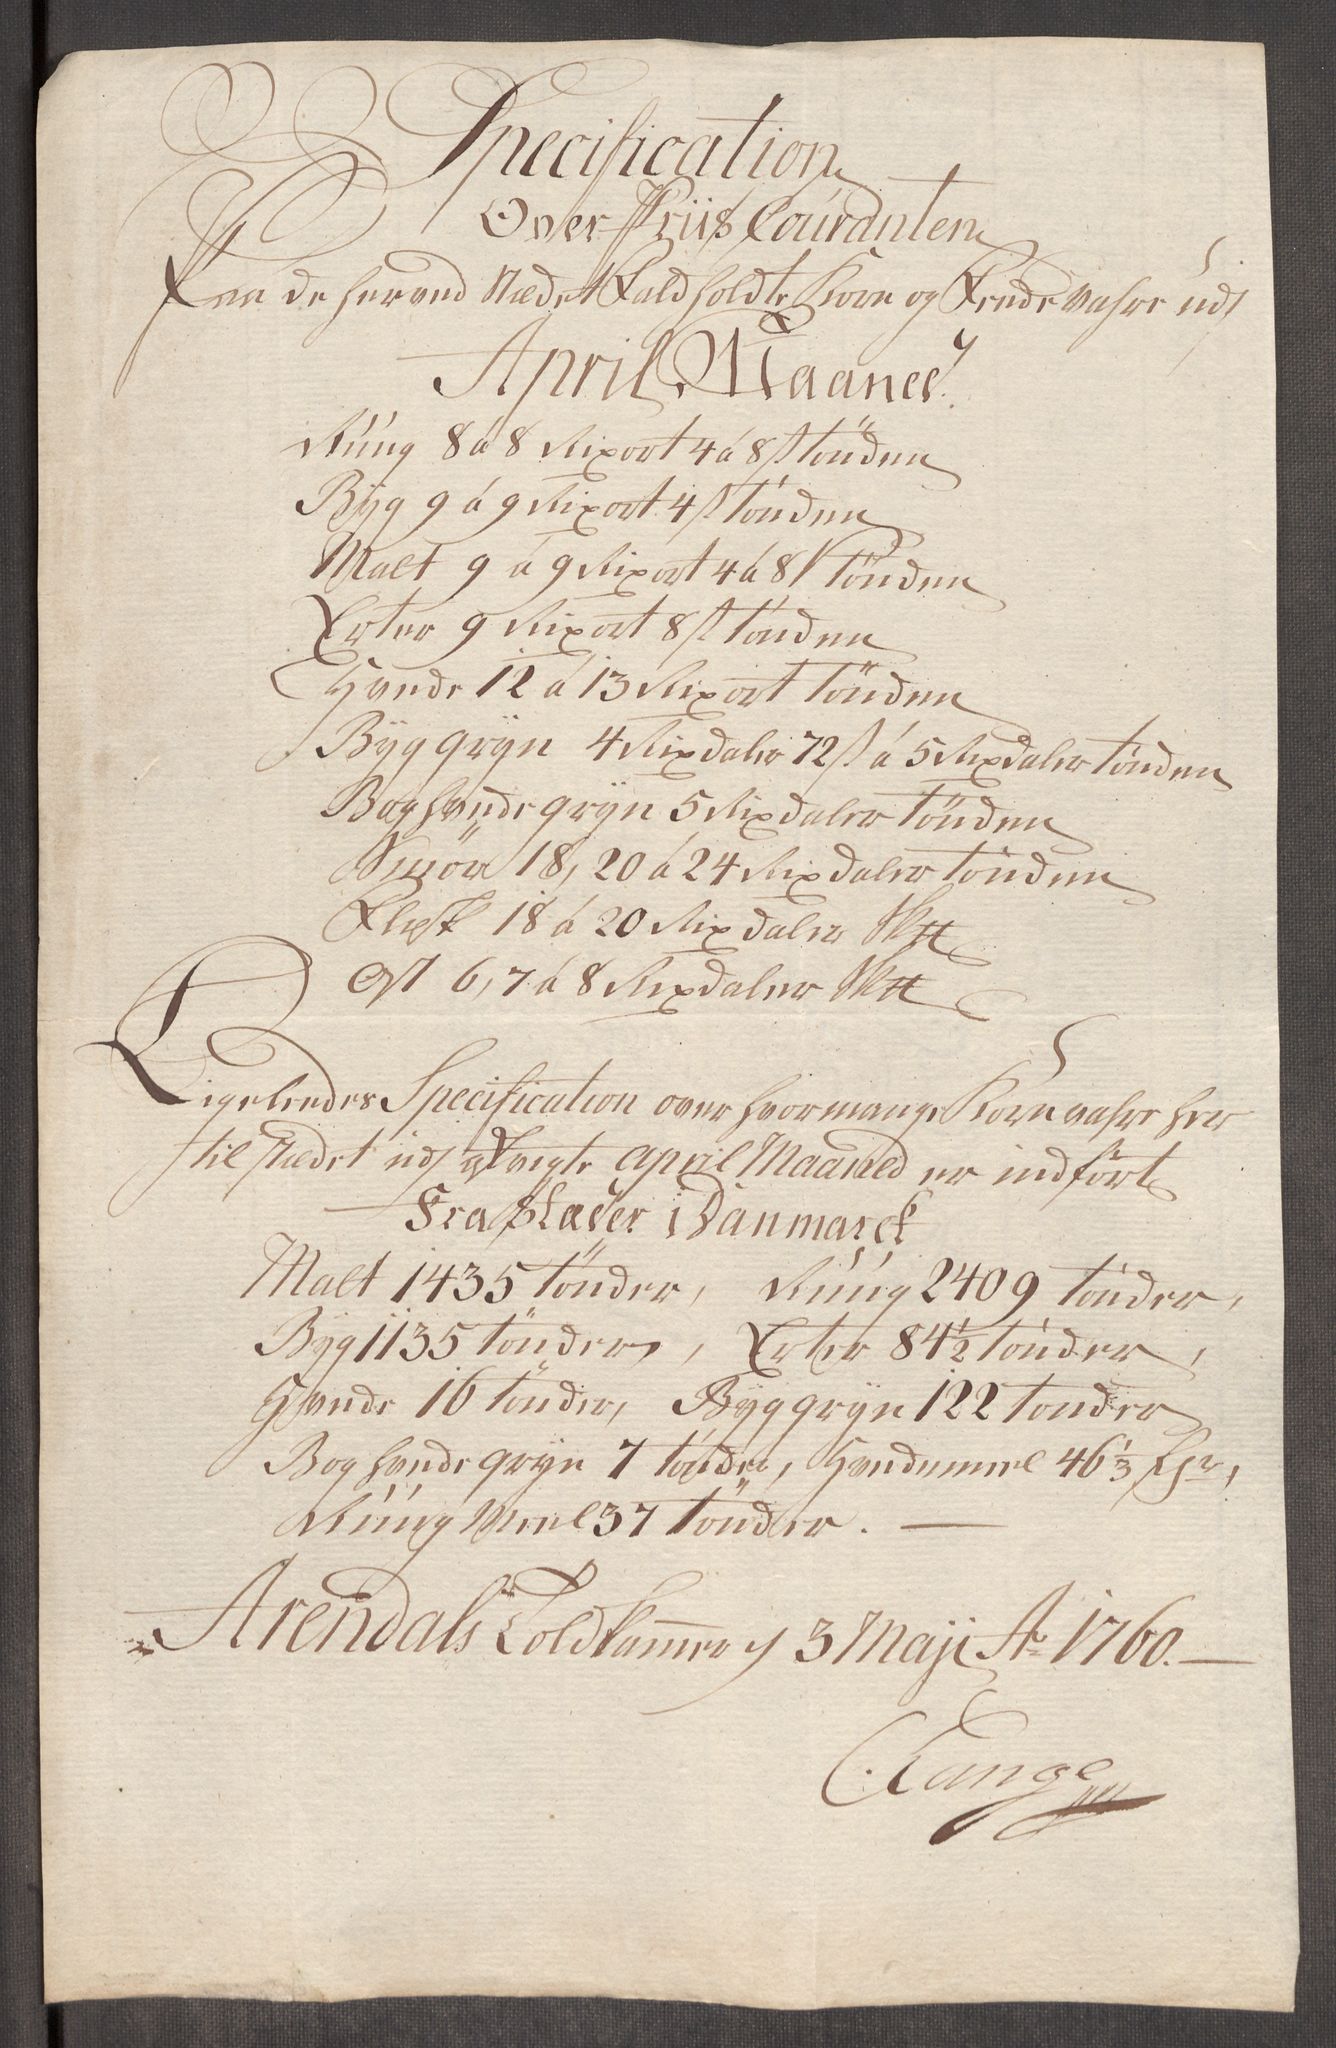 Specification
Over Priis Couranten
Paa de her ved Stædet Faldholdte Korn og Fedevahre udj
April Maaned.
Rúúg 8 á 8 Rixort 4 á 8 s tönden
Byg 9 á 9 Rixort 4 s tönden
Malt 9 á 9 Rixort 4 á 8 s tönden
Erter 9 Rixort 8 s tönden
Hvede 12 á 13 Rixort tönden
Byggryn 4 Rixdaler 72 s á 5 Rixdaler tönden
Boghvedegryn 5 Rixdaler tönden
Smör 18, 20 á 24 Rixdaler tönden
Flesk 18 á 20 Rixdaler
Ost 6, 7 á 8 Rixdaler
Ligeledes Specification over hvormange Kornvahre her
til stædet udj April Maaned er indfört
Fra Stæder i Danmarck
Malt 1435 tönder, Rúúg 2409 tönder,
Byg 1135 tönder, Erter 84½ tönder,
Hvede 16 tönder, Byggryn 122 tönder
Boghvedegryn 7 tönder, Hvedemeel 46⅓
Rúúg Meel 37 tönder. —
Arendals Toldkammer d 3 Maji Ao 1760. —
C. Lange